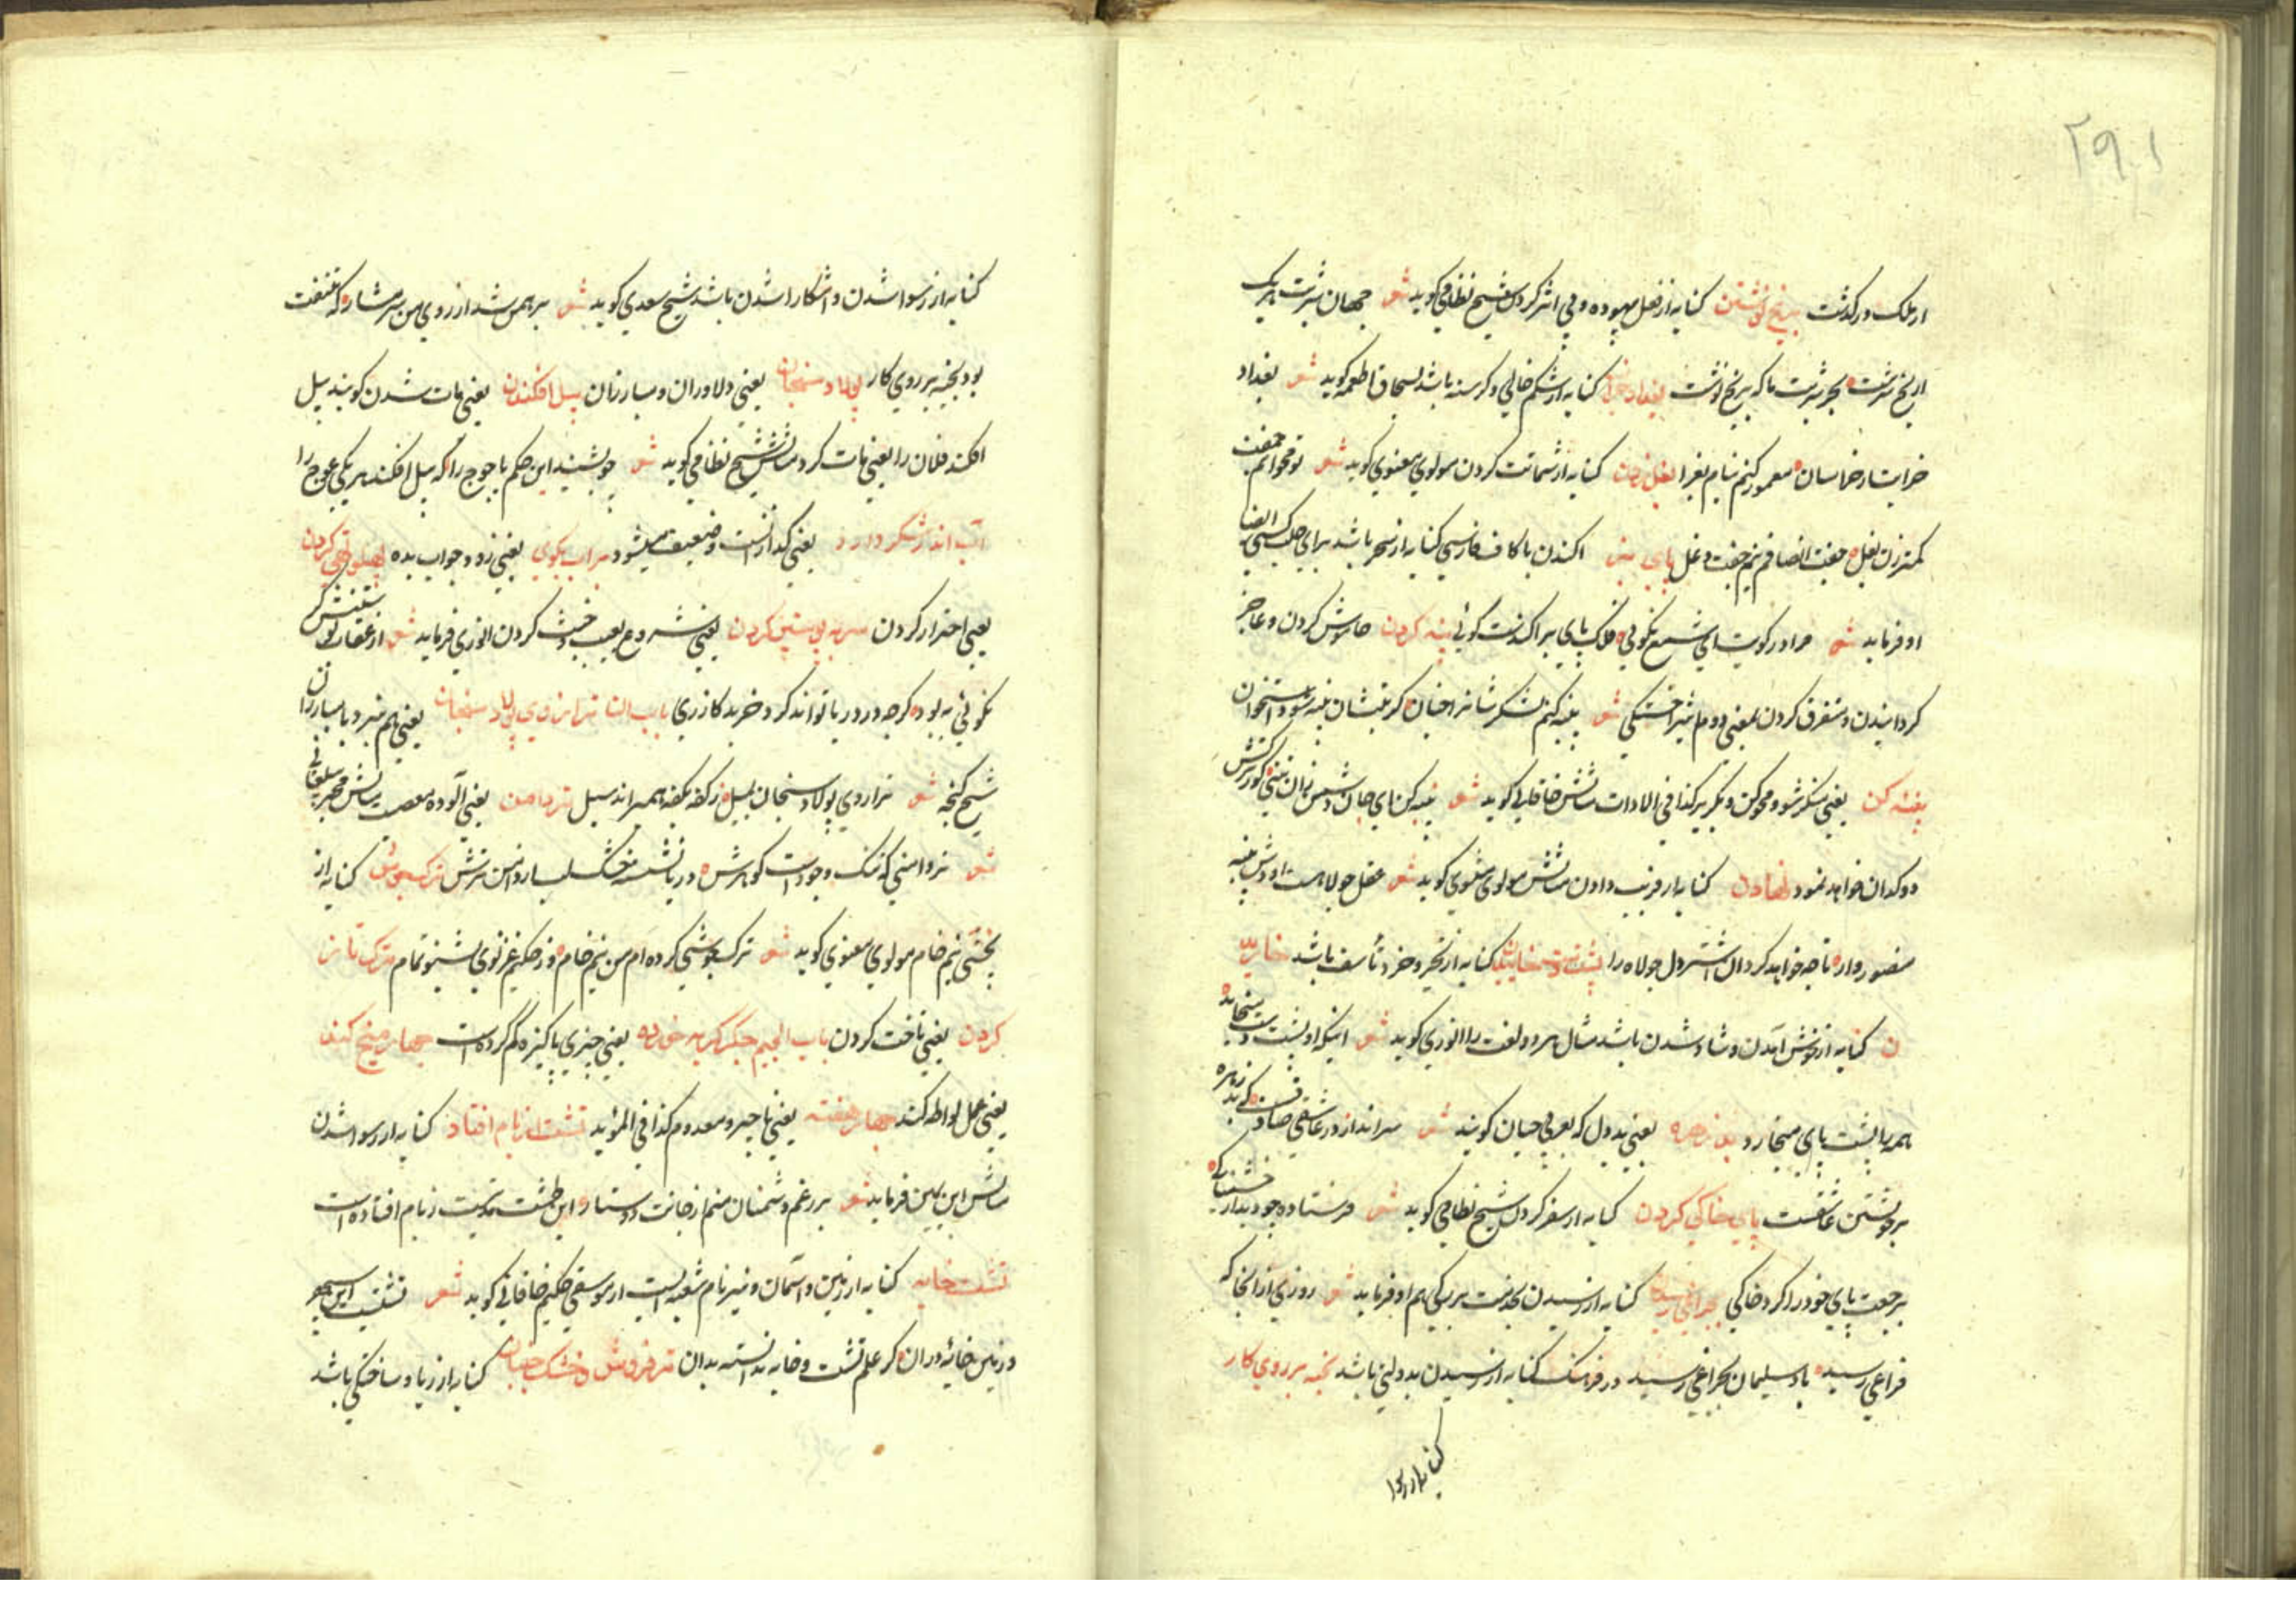 ۲۹۱
از ملک درگذشت بر یخ نوشتن کنایه از فعل بیهوده و بی اثر کردن شیخ نظامی کوید شعر جهان شربت هر یک
از یخ سرشت بجز شربت ما که بر یخ نوشت بغداد خراب کنایه از شکم خالی و کرسنه باشد بسحاق اطعمه کوید شعر بغداد
خرابست خراسان معمور کنم بنام بغرا بغل زدن کنایه از شماتت کردن مولوی معنوی کوید شعر تو مخوانم جفت
کمتر زن بغل جفت انصافم نیم جفت دغل پای پس اکندن با کاف فارسی کنایه از سفر باشد برای طلب کسی ایضا
او فرماید شعر مرا در کویت ای شمع نکوئی فلک پای بز افکندست کوئی پنبه کردن خاموش کردن و عاجز
کردانیدن و متفرق کردن بمعنی دوم میر اخستکی شعر پنبه کنم لشکرشانرا چنان کز تنشان پنبه شود استخوان
پنبه کن یعنی متفرق شو و محو کن و بگریز کذا فی الادات مثالش خاقانی کوید شعر پنبه کن ای جان دشمن زان تنی کورا سرکش
دوکدان خواهد نمود نهادن کنایه از فریب دادن مثالش مولوی مثنوی کوید شعر عقل جولاهست او دش پنبه
منصوروار تا چه خواهد کرد آن اشتردل جولاه را پشت دست خاییدن کنایه از تحیر و خرد و تأسف باشد خارید
ن کنایه از خوش آمدن و شاد شدن باشد مثال هر دو لغت را انوری کوید شعر اینکه او پشت دست میخاید
همه را پشت پای میخارد بز زهره یعنی بددل که بعربی جبان کویند شعر سر اندازد در عاشقی صادقست که بد زهره
بر خویشتن عاشقست پای خاکی کردن کنایه از سفر کردن شیخ نظامی کوید شعر فرستاده چو دید آن خشمناکی
برجعت پای خود را کرد خاکی بچراغی رسیدن کنایه از رسیدن بخدمت بزرکی هم او فرماید شعر روزی از آنجا که
فراغی رسید باد سلیمان بچراغی رسید در فرهنک کنایه از رسیدن بدولتی باشد بخیه بر روی کار
کنایه از رسوا
کنایه از رسوا شدن و آشکارا شدن باشد شیخ سعدی کوید شعر برهمن شد از روی من شرمسار که شنعت
بود بخیه بر روی کار پولاد سنجان یعنی دلاوران و مبارزان پیل افکندن یعنی مات شدن کویند پیل
افکند فلان را یعنی مات کرد مثالش شیخ نظامی کوید شعر چو بشنید این حکم یاجوج را که پیل افکند هر یکی عوج را
آب اندر شکر دارد یعنی کدازانست و ضعیف میشود بر آب بکوی یعنی زود جواب بده پهلو تهی کردن
یعنی احتراز کردن سر به پوستین کردن یعنی شروع بعیب و خبث کردن انوری فرماید شعر از عقاب پوستینش کر
نکوئی به بود کرچه در دریا تواند کرد خربند کازری باب التا ترازوی پولاد سنجان یعنی هم نبرد با مبارزان
شیخ کنجه شعر ترازوی پولاد سنجان بمیل ز کفه بکفه همیراند سیل تردامن یعنی آلوده معصیت مثالش مجیر بیلقانی
شعر تردامنی که ننک وجودست کوهرش دریا نشسته خشک لب از دامن ترش ترک جوشش کنایه از
پختنی نیم خام مولوی معنوی کوید شعر ترک جوشی کرده ام من نیم خام از حکیم غزنوی بشنو تمام ترک تاز
کردن یعنی تاخت کردن باب الجیم جکر کربه خورده یعنی چیزی پاکیزه کم کرده است چهار میخ کند
یعنی عمل لواطه کند چهار هفته یعنی ناچیز و معدوم کذا فی المؤید تشت از بام افتاد کنایه از رسوا شدن
مثالش ابن یمین فرماید شعر بر رغم دشمنان منم از جانت دوستدار این طشت مدتیست ز بام افتاده است
تشت خانه کنایه از زمین و آسمان و نیز نام شعبه ایست از موسیقی حکیم خاقانی کوید شعر تشتیست این سپهر
و زمین خانه در آن کر علم تشت و خانه ندانسته بدان تر فروش و خشک جنبان کنایه از زیاد ساختکی باشد